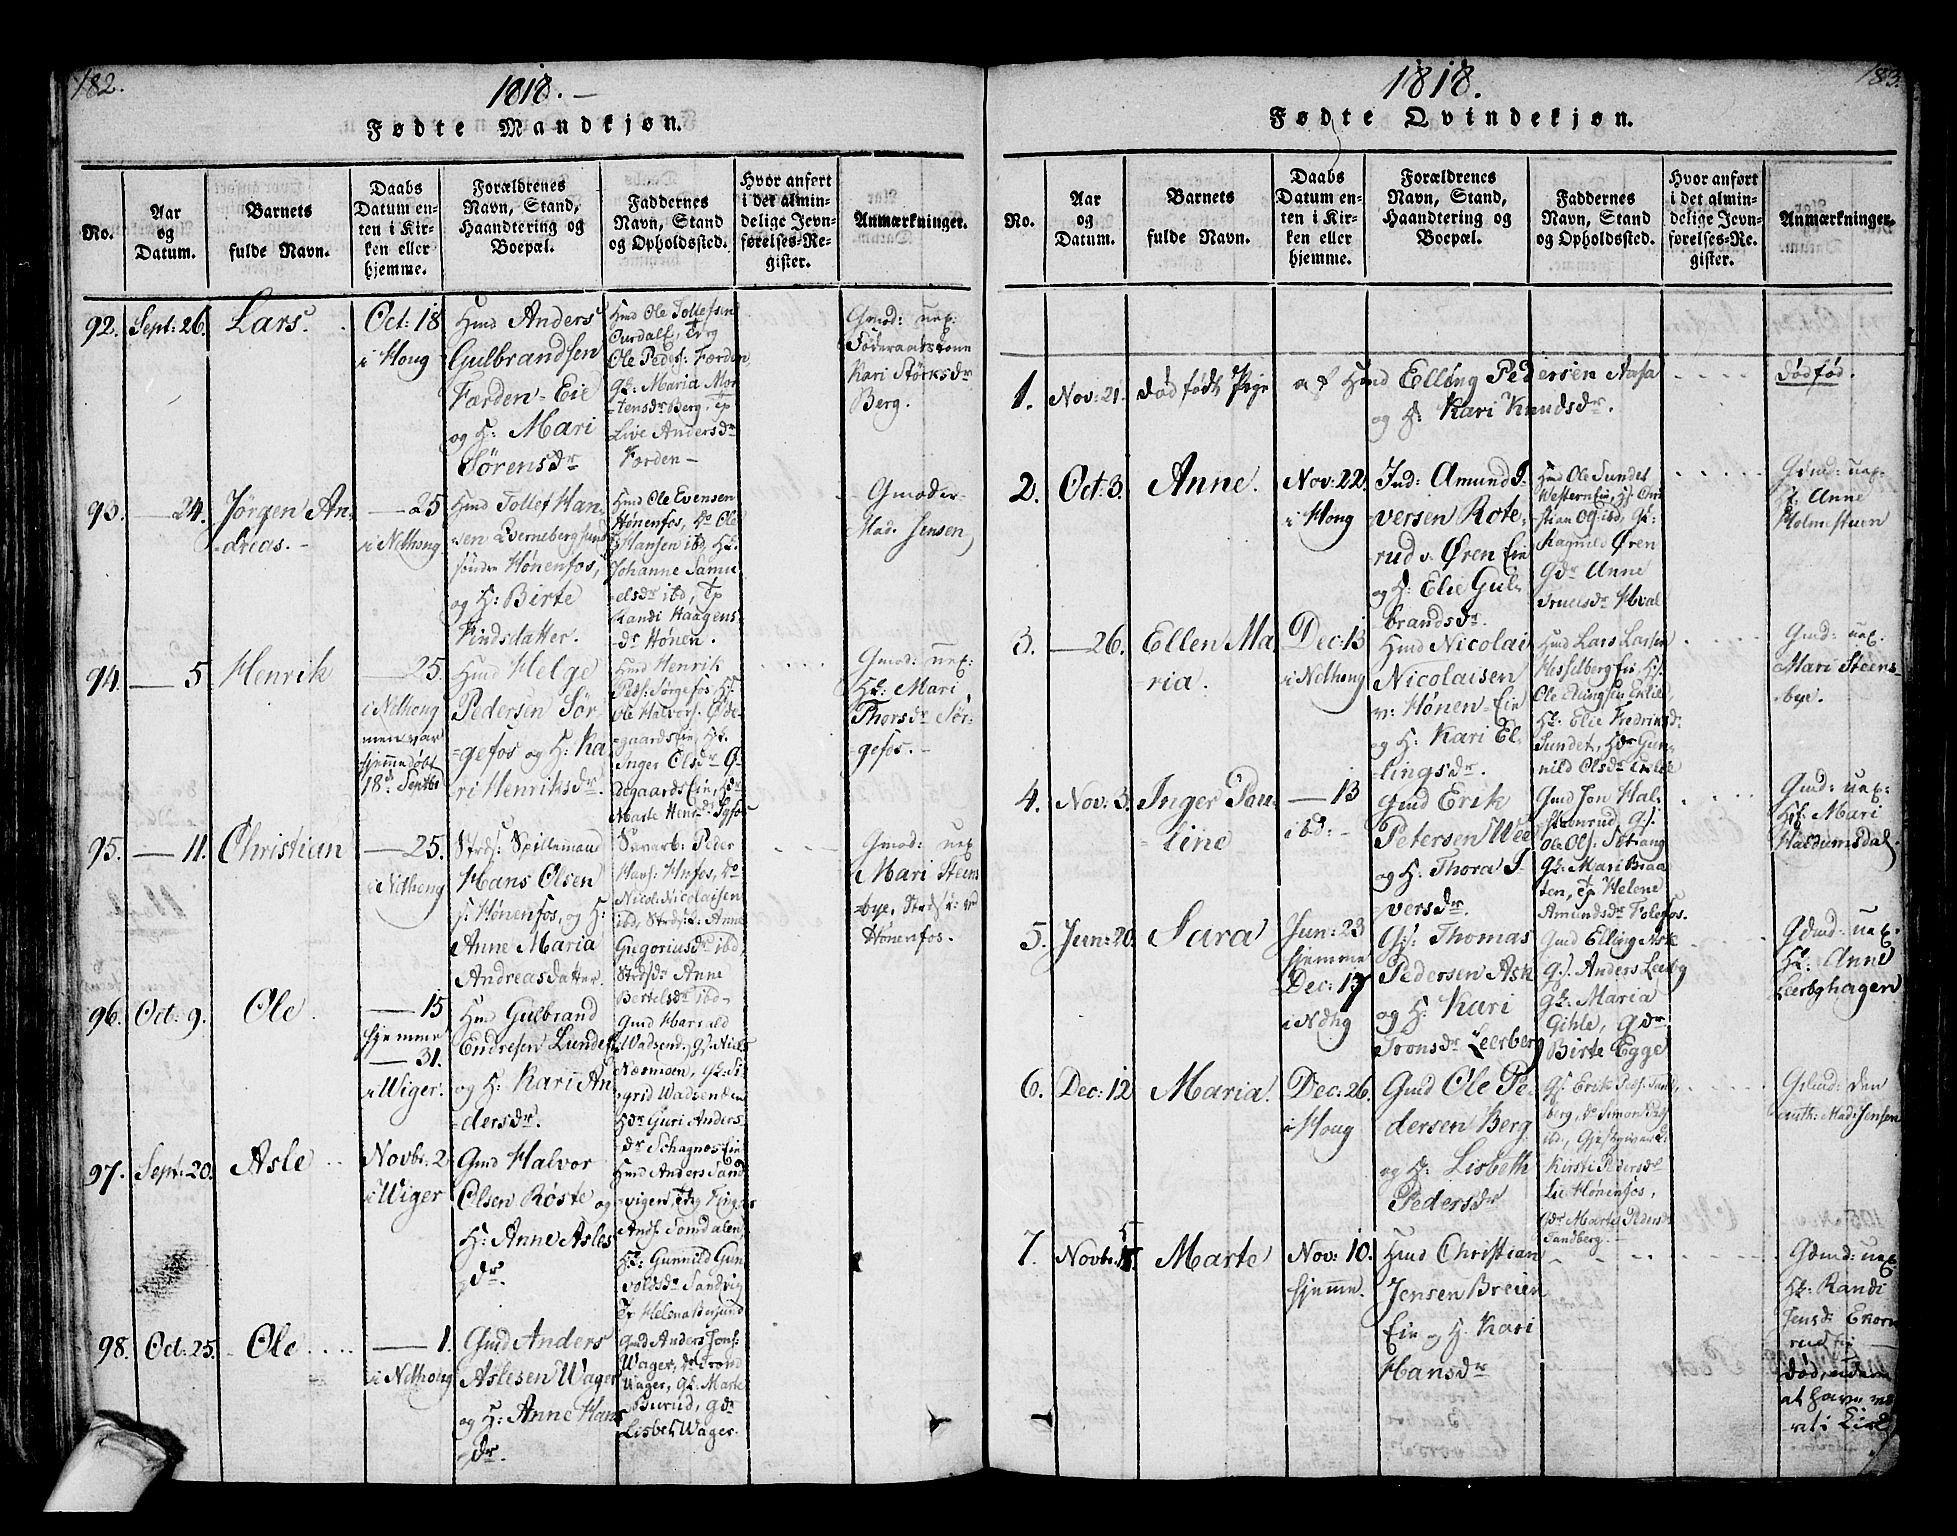 182.
1818. —
Fødte Mandkjøn.
No.
Aar
og
Datum.
Barnets
fulde Navn.
Daabs
Datum en-
ten i Kir-
ken eller
hjemme.
Forældrenes
Navn, Stand,
Haandtering og
Boepæl.
Faddernes
Navn, Stand
og Opholdssted.
Hvor anført
i det almin-
delige Jevn-
førelses-Re-
gister.
Anmærkninger.
92. Sept: 26. Lars.
Oct: 18
i Houg
Hmd Anders
Gulbrandsen
Færden-Eie
og H: Mari
Sørensdr
Hmd Ole Tollefsen
Ole Peders: Færden
Gk: Maria Mor
tensdr Berg, Tp
Live Andersdr
Færden —
Gmod: uex:
Føderaadskone
Kari Størksdr
Berg.
93. — 24. Jørgen An-
dreas. —
— 25
i Nelhoug
Hmd Tollef Han
sen Qvernebergsund
søndre Hønenfos,
og H: Birte
Knudsdatter.
Hmd Ole Evensen
Hønenfos, do Ole
Hansen ibd, Hk:
Johanne Samu
elsdr ibd, Tp
Randi Haagens
dr Hønen.
Gmoder
Mad. Jensen
94. — 5 Henrik
— 25.
i Nelhoug
men var
hjemmedøbt
18de Septbr
Hmd Helge
Pedersen Sør
gefos og H: Ka
ri Henriksdr.
Hmd Henrik
Peds: Sørgefos, H:
Ole Halvors: Øde-
gaardseie, Hk:
Inger Olsdr
Gmod: uex:
Hk: Mari
Thorsdr Sør-
gefos. —
95. — 11. Christian
— 25.
i Nelhoug
Strds: Spillemand
Hans Olsen
Hønenfos, og H:
Anne Maria
Andreasdatter.
Hans: Hnfos, do
Nicol: Nicolaisen
ibd, Anne
Gregoriusdr ibd,
Anne
Bertelsdr ibd
Gmod: uex
Mari Steens
bye,
Hønenfos.
96. Oct: 9. Ole.
— 15
hjemme
— 31.
i Wiger.
Hmd Gulbrand
Endresen Lundes
og H: Kari An
dersdr.
Gmd Harald
Wadsend, Gs: Niels
Næsmoen, Gk: Si
grid Wadsenden
Hdr Guri Anders-
dr
97. Sept: 20. Asle
Novbr. 2
i Wiger
Gmd Halvor
Olsen Røste og
H: Anne Asles
dr.
Hmd Anders Sand
vigen,
Ands: Somdalen,
Hk: Gunnild Gun
voldsdr Sandvig
98. Oct: 25. Ole
— 1.
i Nelhoug
Gmd Anders
Aslesen Wager
og H: Anne Hans
dr
Gmd Anders Jons:
Wager, do Trond
Wager, Gk: Marte
Burud, Gdr
Lisbet Wager.
183.
1818.
Fødte Qvindekjøn.
No.
Aar
og
Datum.
Barnets
fulde Navn.
Daabs
Datum en-
ten i Kir-
ken eller
hjemme.
Forældrenes
Navn, Stand,
Haandtering og
Boepæl.
Faddernes
Navn, Stand
og Opholdssted.
Hvor anført
i det almin-
delige Jevn-
førelses-Re-
gister.
Anmærkninger.
1. Nov: 21. dødfødt Pige af Hmd Elling Pedersen Aasa
og H: Kari Knudsdr.
dødfød.
2. Oct: 3. Anne.
Nov: 22.
i Houg
Ind: Amund I-
versen Rote-
rud v. Øren Eie
og H: Elie Gul-
brandsdr.
Hmd Ole Sundet
Western Eie, Hs: Chri
stian Ols: ibd, Gk:
Ragnild Øren
Gdr Anne
Truelsdr Hval
Gdmd: uex.
Hk Anne
Holmsteen
3. — 26. Ellen Ma
ria.
Dec: 13
i Nelhoug
Hmd Nicolai
Nicolaisen
v: Hønen-Eie
og H: Kari El-
lingsdr.
Hmd Lars Larsen
Hesselberg Eie, Hs:
Hk: Elie Fredriksdr
Sundet, Hdr Gun-
nild Olsdr
Gmd: uex.
Mari Steens
bye.
4. Nov: 3. Inger Pau
line
— 13
ibd: —
Gmd Erik
Petersen Wee
og H: Thora I-
versdr.
Gmd Jon Hal-
Ole Ols:
Gk: Mari Braa
ten, Tp Helene
Amundsdr Follefos.
Gmd: uex:
Hk: Mari
Haldumsdal.
5. Jun: 20. Sara
Jun: 23
hjemme
Dec: 17
i Ndhg
Gs: Thomas
Pedersen Ask
og H: Kari
Tronsdr Leerberg
Gmd Elling Ask
Gs: Anders Leerbg
Gk: Maria
Gihle, Gdr
Birte Egge
Gdmd: uex.
Hk: Anne
Leerbghagen
6. Dec: 12 Maria.
Dec: 26.
i Houg
Gmd Ole Pe
dersen Berg
og H: Lisbeth
Pedersdr
Gs: Erik Peds: Sand
berg, do Simon
ibd, Gjestgiverk:
Kirsti Pedersdr
Lie Hønenfos,
Gdr Marte Pedersdr
Sandberg. —
Gdmd: den
auth: Mad: Jensen
7. Novbr. 5 Marte
Nov: 10.
hjemme.
Hmd Christian
Jensen Breien
Eie og H. Kari
Hansdr
Gdmd: uex
Hk: Randi
Jensdr Ekorn
rud Eie
død, uden
at have væ
ret i Kirke